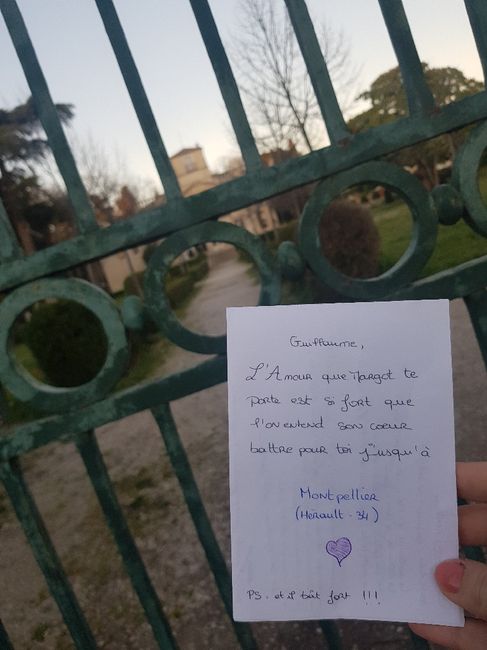 Guillaume,
L'Amour que Margot te
porte est si fort que
l'on entend son coeur
battre pour toi jusqu'à
Montpellier
(Hérault - 34)
PS : et il bât fort !!!